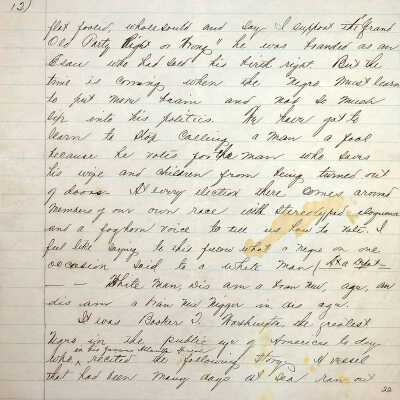 12)
flat footed, whole souled and say "I support the grand
Old Party Right or Wrong" he was branded as an
Esau who had sold his birth right. But the
time is coming when the Negro must learn
to put more brain and not so much
lip into his politics. We have got to
learn to stop calling a man a fool
because he votes for the man who saves
his wife and children from being turned out
of doors. At every election there comes around
members of our own race with stereotyped eloquence
and a foghorn voice to tell us how to vote. I
feel like saying to this fellow what a negro on one
occasion said to a white man
White man, dis am a bran new age, an
dis am a bran new Nigger in dis age.
It was Booker T. Washington, the greatest
Negro in the public eye of Americas to day
in his famous Atlanta Speech
who recited the following story. A vessel
that had been many days at sea ran out
22